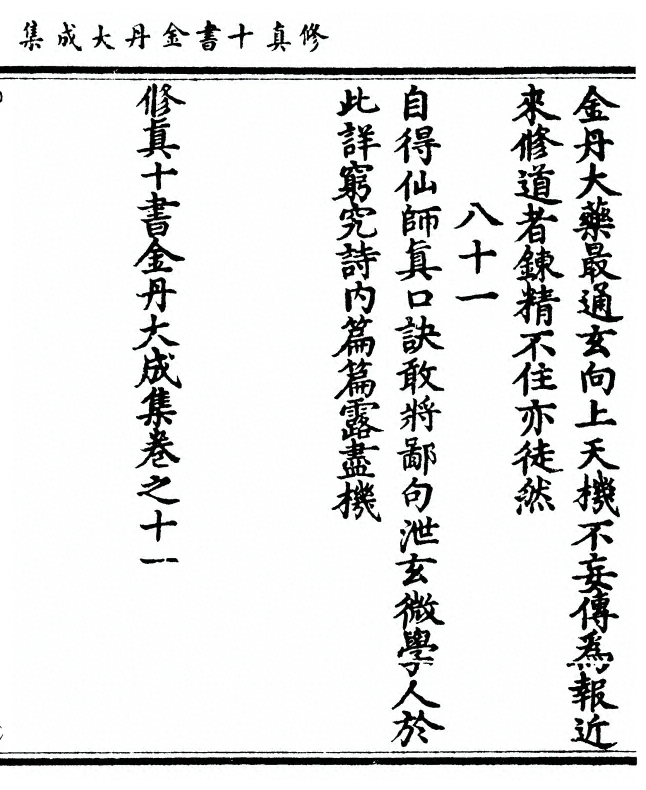 修真十書金丹大成集
金丹大藥最通玄向上天機不妄傳爲報近
來修道者鍊精不住亦徒然
八十一
自得仙師眞口訣敢將鄙句泄玄微學人於
此詳窮究詩内篇篇露盡機
修眞十書金丹大成集卷之十一